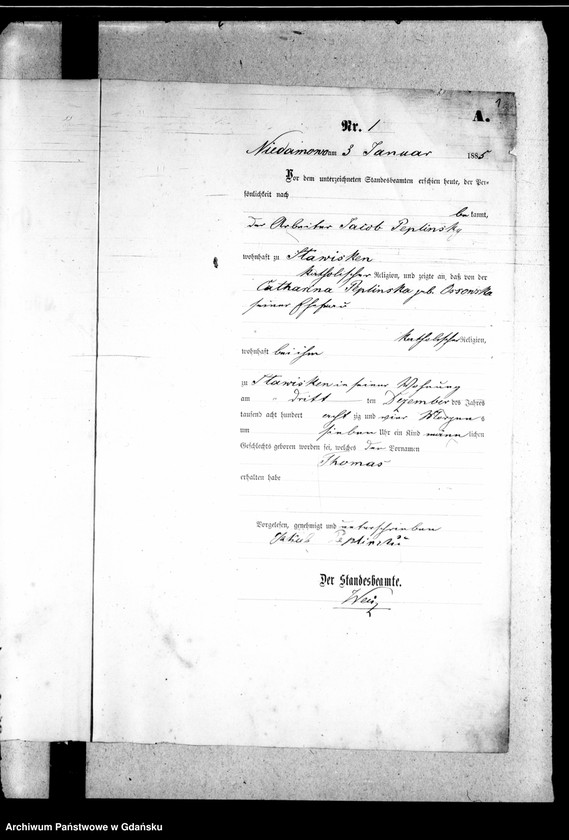 A.
Nr. 1
Niedamowo am 3 Januar 1885
Vor dem unterzeichneten Standesbeamten erschien heute, der Per-
sönlichkeit nach
bekannt,
der Arbeiter Jacob Peplinsky
wohnhaft zu Stawisken
katholischer Religion, und zeigte an, daß von der
Catharina Peplinska geb. Ossowska
seiner Ehefrau
katholischer Religion,
wohnhaft bei ihm
zu Stawisken in seiner Wohnung
am dritten Dezember des Jahres
tausend acht hundert achtzig und vier Morgens
um sieben Uhr ein Kind männlichen
Geschlechts geboren worden sei, welches den Vornamen
Thomas
erhalten habe
Vorgelesen, genehmigt und unterschrieben
Jakub
Der Standesbeamte.
Archiwum Państwowe w Gdańsku